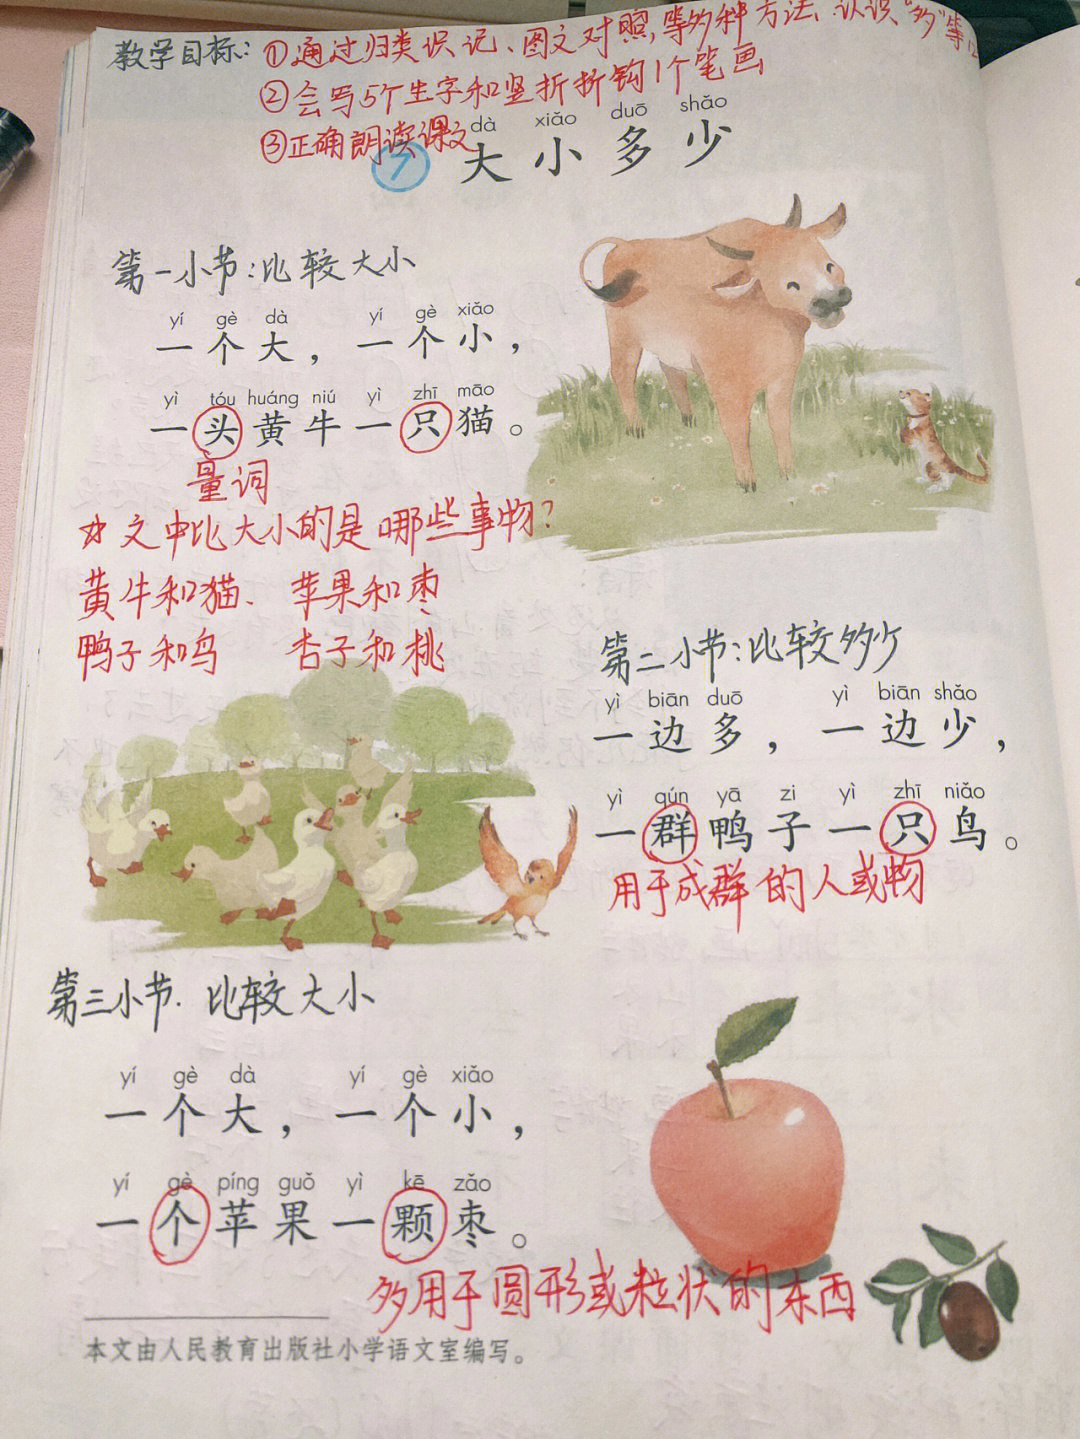 教学目标：①通过归类识记、图文对照，等多种方法、认识“多”等
②会写5个生字和竖折折钩1个笔画
③正确朗读课文
dà xiǎo duō shǎo
7 大小多少
第一小节：比较大小
yí gè dà yí gè xiǎo
一个大，一个小，
yì tóu huáng niú yì zhī māo
一头黄牛一只猫。
量词
☆文中比大小的是哪些事物？
黄牛和猫、 苹果和枣
鸭子和鸟 杏子和桃
第二小节：比较多少
yì biān duō yì biān shǎo
一边多，一边少，
yì qún yā zi yì zhī niǎo
一群鸭子一只鸟。
用于成群的人或物
第三小节．比较大小
yí gè dà yí gè xiǎo
一个大，一个小，
yí gè píng guǒ yì kē zǎo
一个苹果一颗枣。
多用于圆形或粒状的东西
本文由人民教育出版社小学语文室编写。